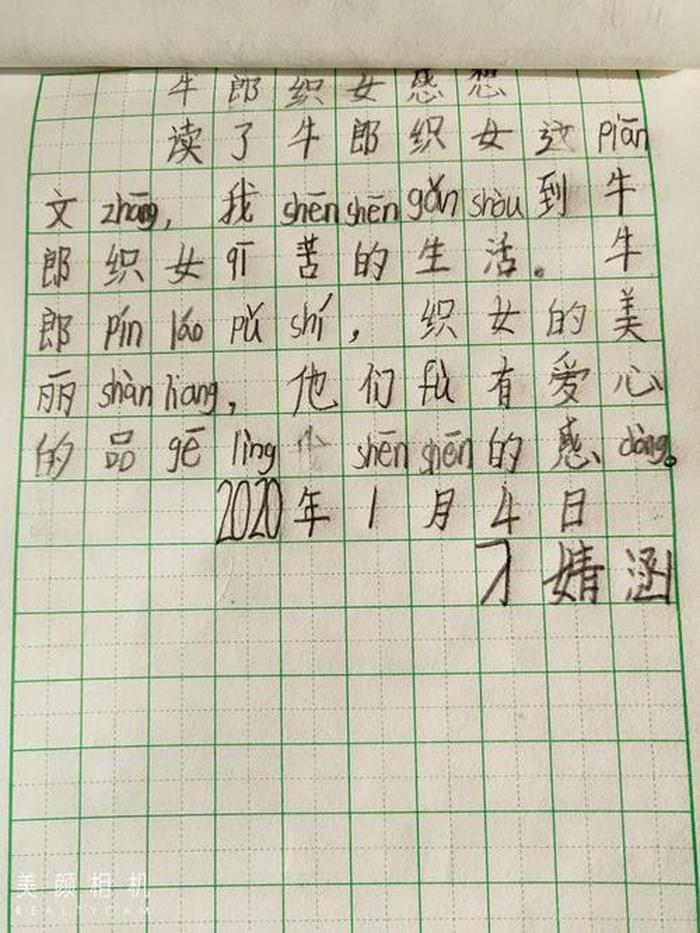 牛郎织女感想
读了牛郎织女这piān
文zhāng,我shēnshēngǎnshòu到牛
郎织女qī苦的生活。牛
郎pínláopǔshí,织女的美
丽shànliang,他们fù有爱心
的品gēlìng个shēnshēn的感dòng。
2020年1月4日
刁婧涵
美颜相机
BEAUTYCAM